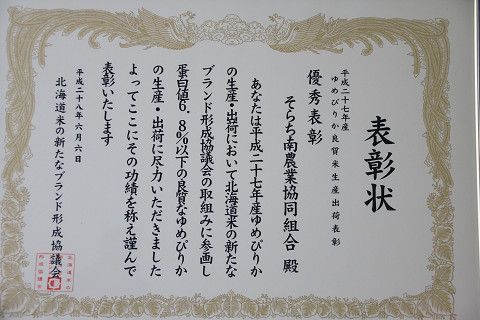 表彰状
平成二十七年産
ゆめぴりか良質米生産出荷表彰
優秀表彰
そらち南農業協同組合 殿
あなたは平成二十七年産ゆめぴりか
の生産・出荷において北海道米の新たな
ブランド形成協議会の取組みに参画し
蛋白値6.8%以下の良質なゆめぴりか
の生産・出荷に尽力いただきました
よってここにその功績を称え謹んで
表彰いたします
平成二十八年六月六日
北海道米の新たなブランド形成協議会